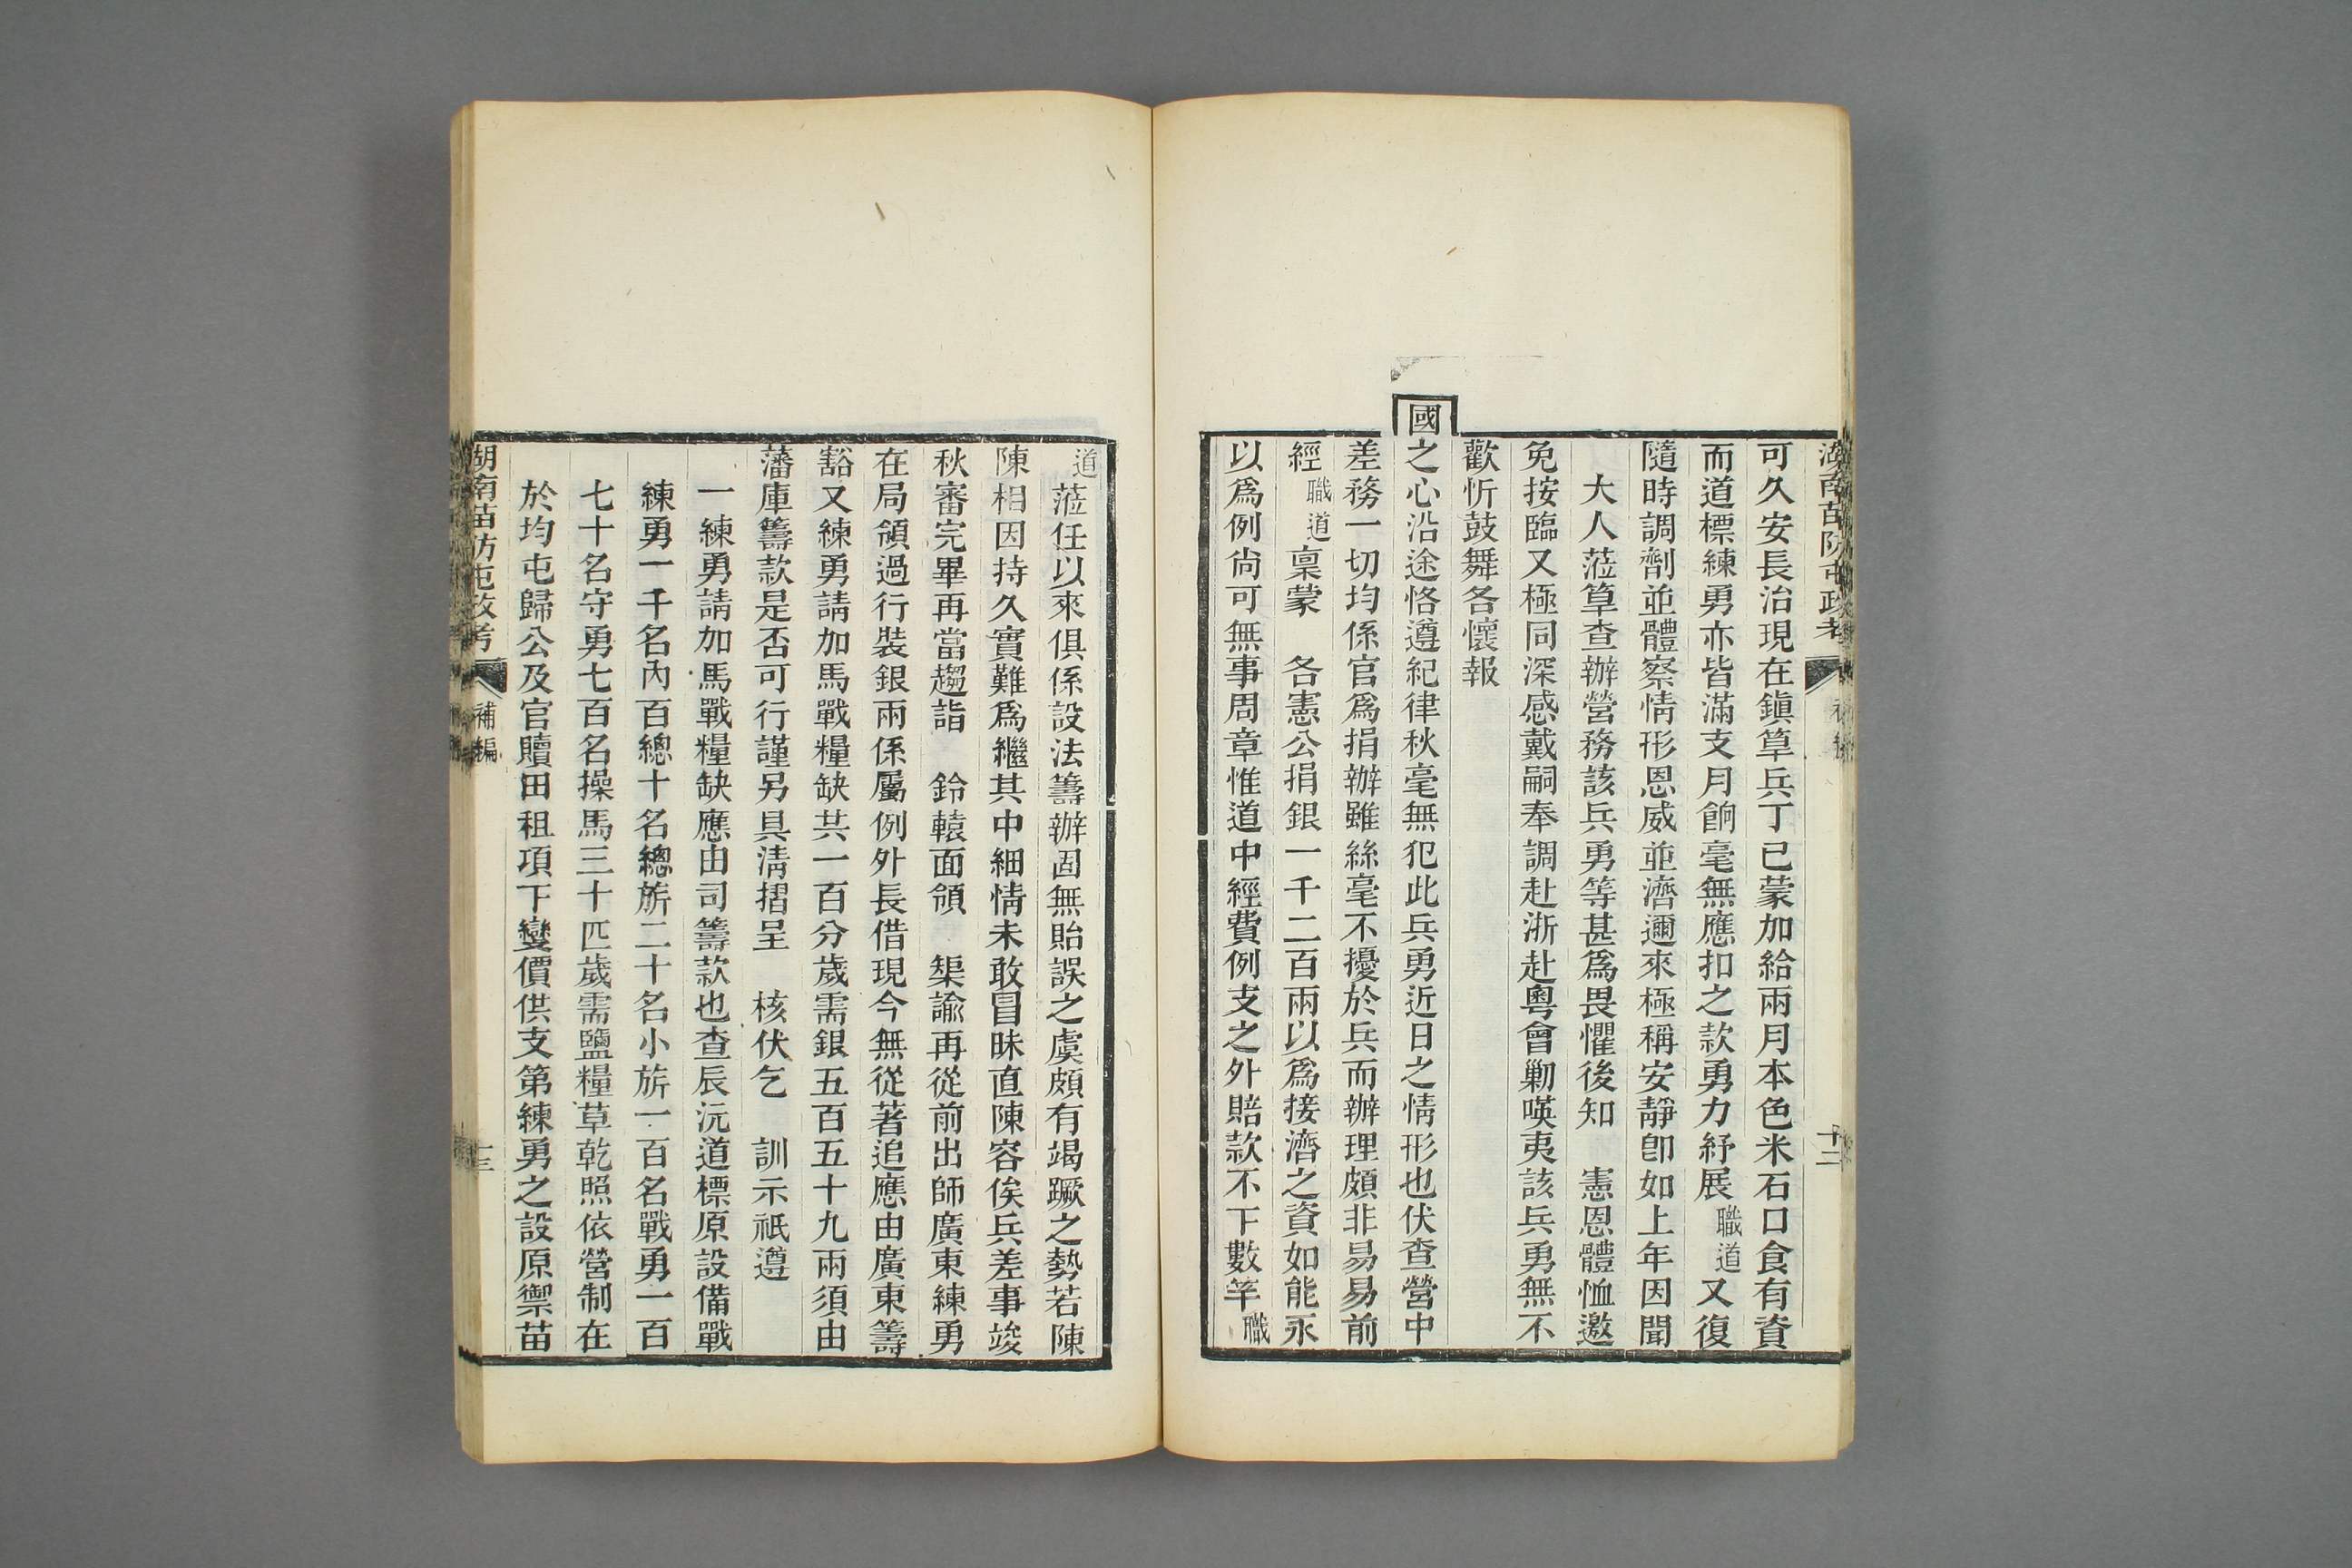 湖南苗防屯政考
補編
十二
可久安長治現在鎭筸兵丁已蒙加給兩月本色米石口食有資
而道標練勇亦皆滿支月餉毫無應扣之款勇力紓展職道又復
隨時調劑並體察情形恩威並濟邇來極稱安靜卽如上年因聞
大人蒞筸查辦營務該兵勇等甚爲畏懼後知　憲恩體恤邀
免按臨又極同深感戴嗣奉調赴浙赴粵會勦㗲夷該兵勇無不
歡忻鼓舞各懷報
國之心沿途恪遵紀律秋毫無犯此兵勇近日之情形也伏查營中
差務一切均係官爲捐辦雖絲毫不擾於兵而辦理頗非易易前
經職道稟蒙　各憲公捐銀一千二百兩以爲接濟之資如能永
以爲例尙可無事周章惟道中經費例支之外賠款不下數竿職
道蒞任以來俱係設法籌辦固無貽誤之虞頗有竭蹶之勢若陳
陳相因持久實難爲繼其中細情未敢冒昧直陳容俟兵差事竣
秋審完畢再當趨詣　鈴轅面領　榘諭再從前出師廣東練勇
在局領過行裝銀兩係屬例外長借現今無從著追應由廣東籌
豁又練勇請加馬戰糧缺共一百分歲需銀五百五十九兩須由
藩庫籌款是否可行謹另具淸摺呈　核伏乞　訓示祇遵
一練勇請加馬戰糧缺應由司籌款也查辰沅道標原設備戰
練勇一千名內百總十名總旂二十名小旂一百名戰勇一百
七十名守勇七百名操馬三十匹歲需鹽糧草乾照依營制在
於均屯歸公及官贖田租項下變價供支第練勇之設原禦苗
湖南苗防屯政考
補編
十三